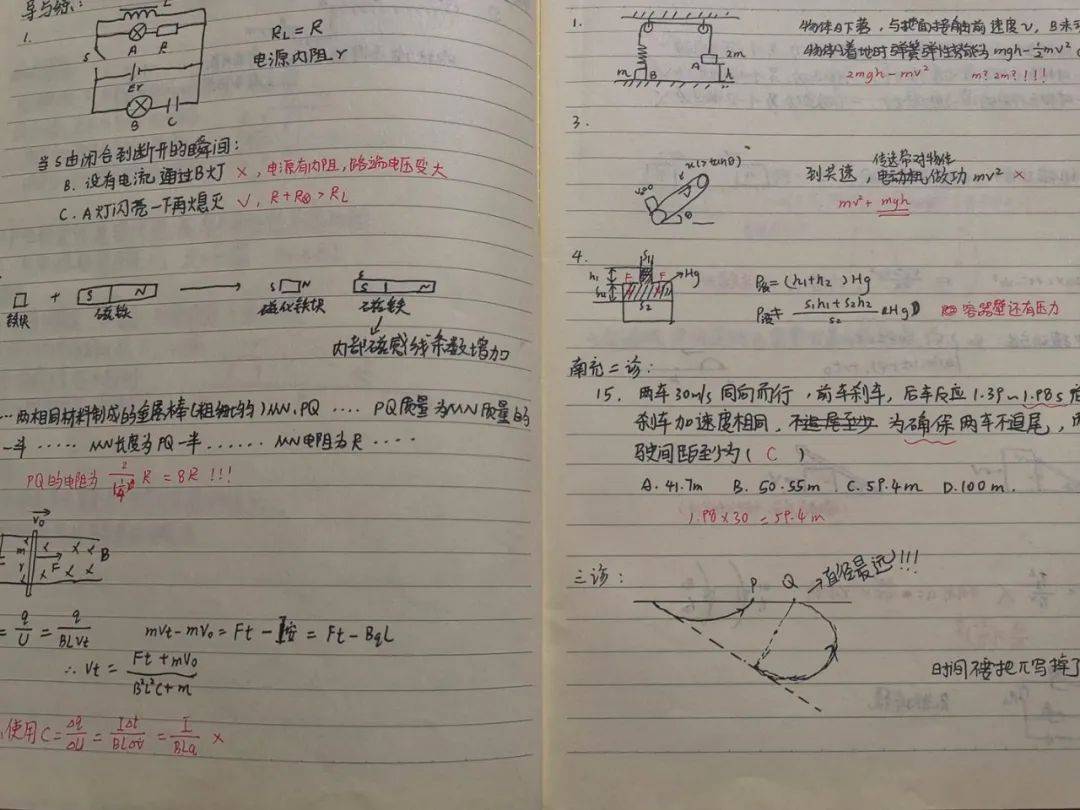 导与练:
1.
L
A
R
S
E r
B
C
R_L = R
电源内阻 r
当 S 由闭合到断开的瞬间:
B. 没有电流通过B灯 ×, 电源有内阻, 路端电压变大
C. A灯闪亮一下再熄灭 √, R+R⊗>R_L
+ S N → S N S N
铁块 磁铁 磁化铁块 磁铁
内部磁感线条数增加
…两相同材料制成的金属棒(粗细均匀) MN, PQ …. PQ质量为MN质量的
一半 ..... MN长度为PQ一半 ...... MN电阻为R ....
PQ的电阻为 R = 8R !!!
v₀
m
r
F
B
= q/U = q/BLVt
mVt-mV₀ = Ft - I安 = Ft - BqL
∴ Vt = (Ft+mV₀)/(B²L²C+m)
使用 C = Δq/ΔU = IΔt/BLΔv = I/BLa ×
1.
2m
A
m
B
h
物体A下落, 与地面接触前速度v, B未
物体A着地时弹簧弹性势能为 mgh-½mv²
2mgh-mv² m? 2m? !!!
3.
θ
到共速, 传送带对物体
电动机做功 mv² ×
mv² + mgh
4.
S₁
h₁
h₂
F F
Hg
S₂
=(h₁+h₂)Hg
(S₁h₁+S₂h₂)/S₂
容器壁还有压力
南充二诊:
15. 两车30m/s 同向而行, 前车刹车, 后车反应 1.39~1.98s
刹车加速度相同, 不追尾至少 为确保两车不追尾,
驶间距至少为( C )
A. 41.7m B. 50.55m C. 59.4m D. 100m.
1.98×30 = 59.4m
三诊:
P Q → 直径最远!!!
时间不要把π写掉了